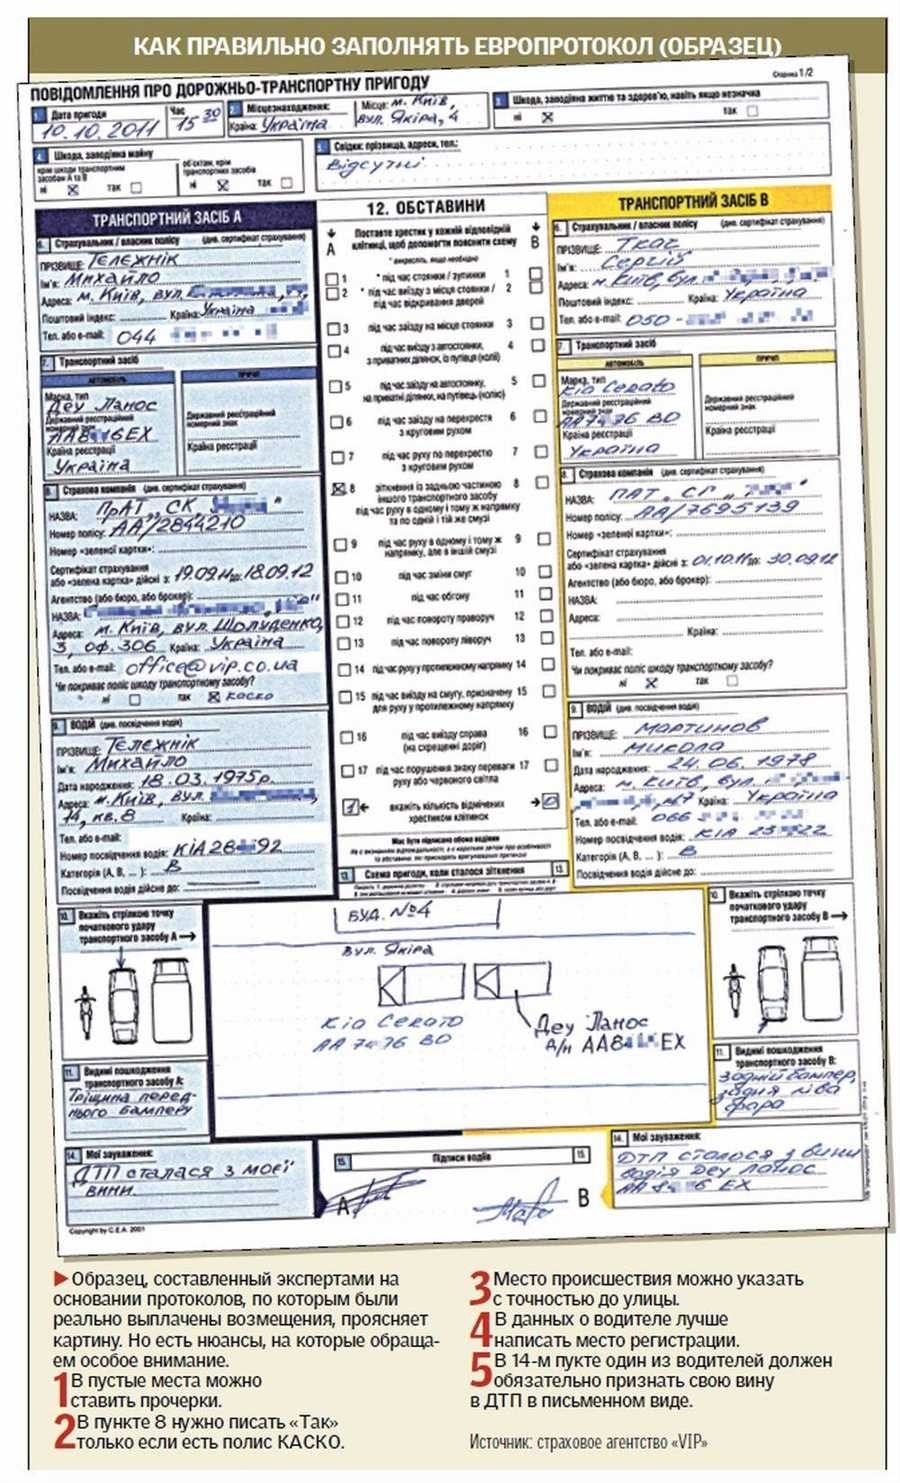 КАК ПРАВИЛЬНО ЗАПОЛНЯТЬ ЕВРОПРОТОКОЛ (ОБРАЗЕЦ)
ПОВІДОМЛЕННЯ ПРО ДОРОЖНЬО-ТРАНСПОРТНУ ПРИГОДУ
Сторінка 1/2
1. Дата пригоди Час
10.10.2011 15 30
2. Місцезнаходження:
Країна: Україна
Місце: м. Київ,
вул. Якіра, 4
3. Шкода, заподіяна життю та здоров'ю, навіть якщо незначна
ні так
4. Шкода, заподіяна майну
крім шкоди транспортним
засобам А та В
ні так
об'єктам, крім
транспортних засобів
ні так
5. Свідки: прізвища, адреси, тел.:
Відсутні
ТРАНСПОРТНИЙ ЗАСІБ А
6. Страхувальник / власник полісу (див. сертифікат страхування)
ПРІЗВИЩЕ: Тєлєжнік
Ім'я: Михайло
Адреса: м. Київ, вул.
Поштовий індекс: Країна: Україна
Тел. або e-mail: 044
7. Транспортний засіб
АВТОМОБІЛЬ ПРИЧІП
Марка, тип
Деу Ланос
Державний реєстраційний
номерний знак
АА8 6ЕХ
Країна реєстрації
Україна
Державний реєстраційний
номерний знак
Країна реєстрації:
8. Страхова компанія (див. сертифікат страхування)
НАЗВА: ПрАТ „СК „
Номер полісу: АА/2844210
Номер «зеленої картки»:
Сертифікат страхування
або «зелена картка» дійсні з: 19.09.11 до 18.09.12
Агентство (або бюро, або брокер):
НАЗВА:
Адреса: м. Київ, вул. Шолуденко,
3, оф. 306 Країна: Україна
Тел. або e-mail: office@vip.co.ua
Чи покриває поліс шкоду транспортному засобу?
ні так каско
9. ВОДІЙ (див. посвідчення водія)
ПРІЗВИЩЕ: Тєлєжнік
Ім'я: Михайло
Дата народження: 18.03.1975р.
Адреса: м. Київ, вул.
74, кв. 8 Країна:
Тел. або e-mail:
Номер посвідчення водія: КІА28 92
Категорія (А, В, ... ): В
Посвідчення водія дійсне до:
12. ОБСТАВИНИ
Поставте хрестик у кожній відповідній
клітинці, щоб допомогти пояснити схему
* викресліть, якщо необхідно
А В
1 * під час стоянки / зупинки 1
2 * під час виїзду з місця стоянки / 2
під час відкривання дверей
3 під час заїзду на місце стоянки 3
4 під час виїзду з автостоянки, 4
з приватних ділянок, із путівця (колії)
5 під час заїзду на автостоянку, 5
на приватні ділянки, на путівець (колію)
6 під час заїзду на перехрестя 6
з круговим рухом
7 під час руху по перехрестю 7
з круговим рухом
8 зіткнення із задньою частиною 8
іншого транспортного засобу
під час руху в одному і тому ж напрямку
та по одній і тій же смузі
9 під час руху в одному і тому ж 9
напрямку, але в іншій смузі
10 під час зміни смуг 10
11 під час обгону 11
12 під час повороту праворуч 12
13 під час повороту ліворуч 13
14 під час руху у протилежному напрямку 14
15 під час виїзду на смугу, призначену 15
для руху у протилежному напрямку
16 під час виїзду справа 16
(на схрещенні доріг)
17 під час порушення знаку переваги 17
руху або червоного світла
1 вкажіть кількість відмічених 0
хрестиком клітинок
Має бути підписано обома водіями
13. Схема пригоди, коли сталося зіткнення 13.
ТРАНСПОРТНИЙ ЗАСІБ В
6. Страхувальник / власник полісу (див. сертифікат страхування)
ПРІЗВИЩЕ: Ткач
Ім'я: Сергій
Адреса: м. Київ, вул.
Поштовий індекс: Країна: Україна
Тел. або e-mail: 050 -
7. Транспортний засіб
АВТОМОБІЛЬ ПРИЧІП
Марка, тип
Kia Cerato
Державний реєстраційний
номерний знак
АА7 76 ВО
Країна реєстрації
Україна
Державний реєстраційний
номерний знак
Країна реєстрації:
8. Страхова компанія (див. сертифікат страхування)
НАЗВА: ПАТ „СГ „
Номер полісу: АА/7695139
Номер «зеленої картки»:
Сертифікат страхування
або «зелена картка» дійсні з: 01.10.11 до 30.09.12
Агентство (або бюро, або брокер):
НАЗВА:
Адреса:
Країна:
Тел. або e-mail:
Чи покриває поліс шкоду транспортному засобу?
ні так
9. ВОДІЙ (див. посвідчення водія)
ПРІЗВИЩЕ: Мартинов
Ім'я: Микола
Дата народження: 24.06.1978
Адреса: м. Київ, вул.
Країна: Україна
Тел. або e-mail: 066
Номер посвідчення водія: КІА 25 22
Категорія (А, В, ... ): В
Посвідчення водія дійсне до:
10. Вкажіть стрілкою точку
початкового удару
транспортного засобу А
БУД. №4
вул. Якіра
Kia Cerato
АА 7 76 ВО
Деу Ланос
д/н АА8 ЕХ
10. Вкажіть стрілкою точку
початкового удару
транспортного засобу В
11. Видимі пошкодження
транспортного засобу А:
Тріщина перед-
нього бамперу
11. Видимі пошкодження
транспортного засобу В:
Задній бампер,
задня ліва
фара
14. Мої зауваження:
ДТП сталася з моєї
вини
15. Підписи водіїв 15
А В
14. Мої зауваження:
ДТП сталося з вини
водія Деу Ланос
АА 8 6 ЕХ
Copyright by C.E.A. 2001
Образец, составленный экспертами на
основании протоколов, по которым были
реально выплачены возмещения, проясняет
картину. Но есть нюансы, на которые обраща-
ем особое внимание.
1 В пустые места можно
ставить прочерки.
2 В пункте 8 нужно писать «Так»
только если есть полис КАСКО.
3 Место происшествия можно указать
с точностью до улицы.
4 В данных о водителе лучше
написать место регистрации.
5 В 14-м пукте один из водителей должен
обязательно признать свою вину
в ДТП в письменном виде.
Источник: страховое агентство «VIP»